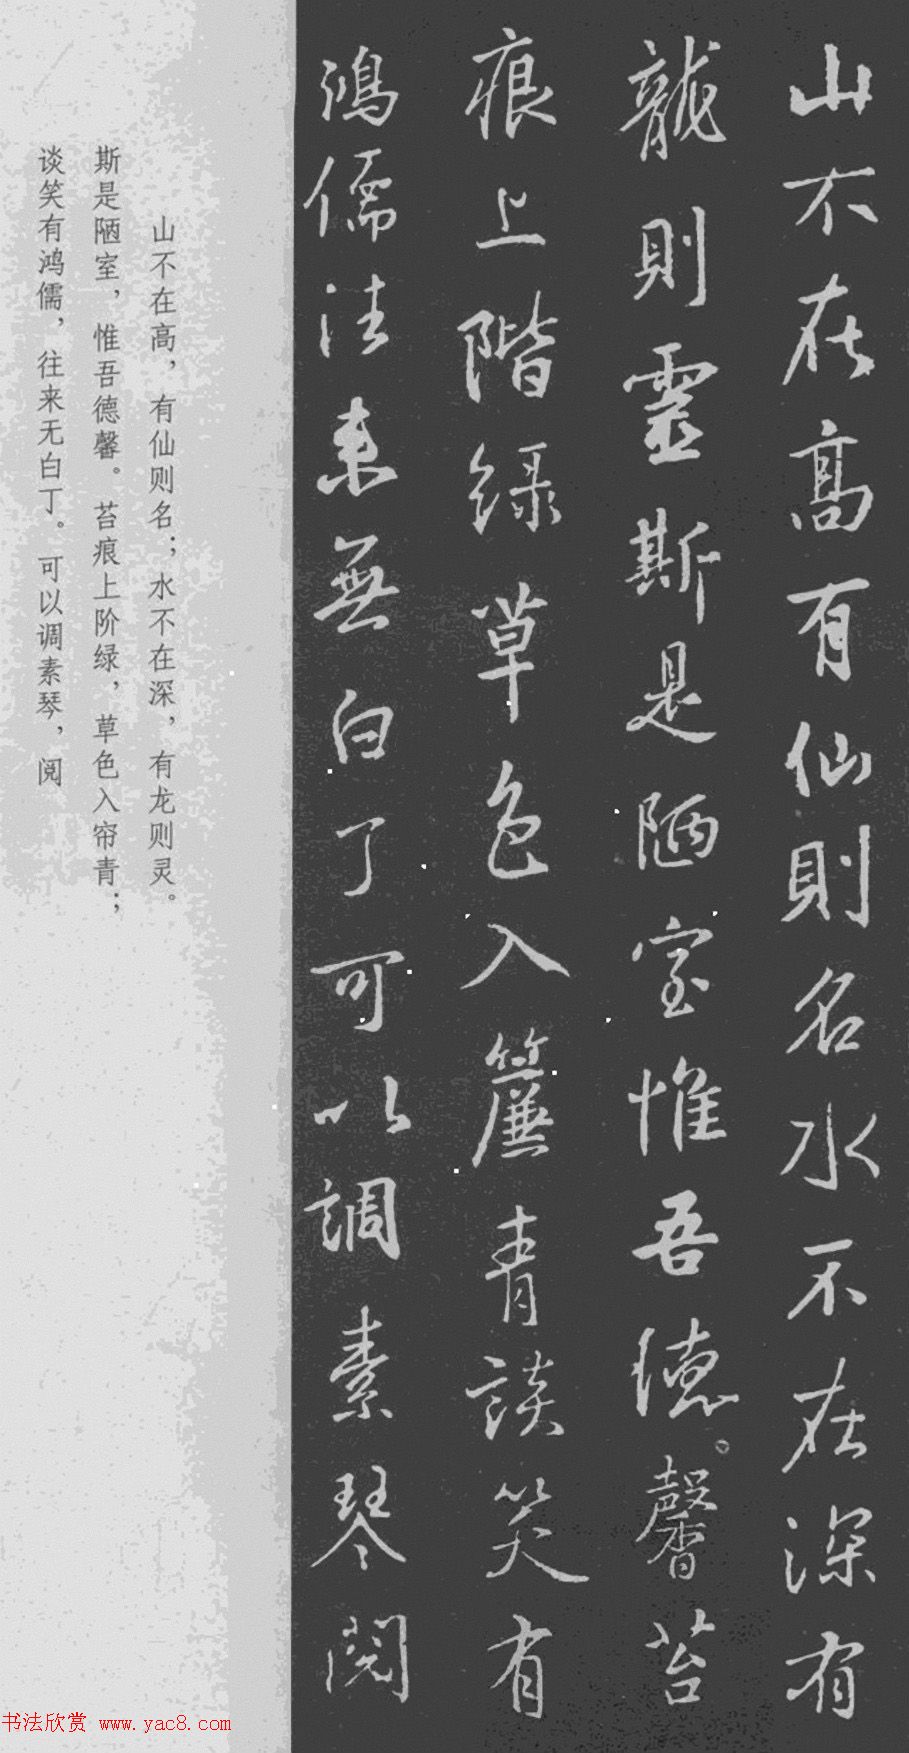 山不在高有仙則名水不在深有
龍則靈斯是陋室惟吾德馨苔
痕上階綠草色入簾青談笑有
鴻儒往来無白丁可以調素琴閱
山不在高，有仙则名；水不在深，有龙则灵。
斯是陋室，惟吾德馨。苔痕上阶绿，草色入帘青；
谈笑有鸿儒，往来无白丁。可以调素琴，阅
书法欣赏 www.yac8.com